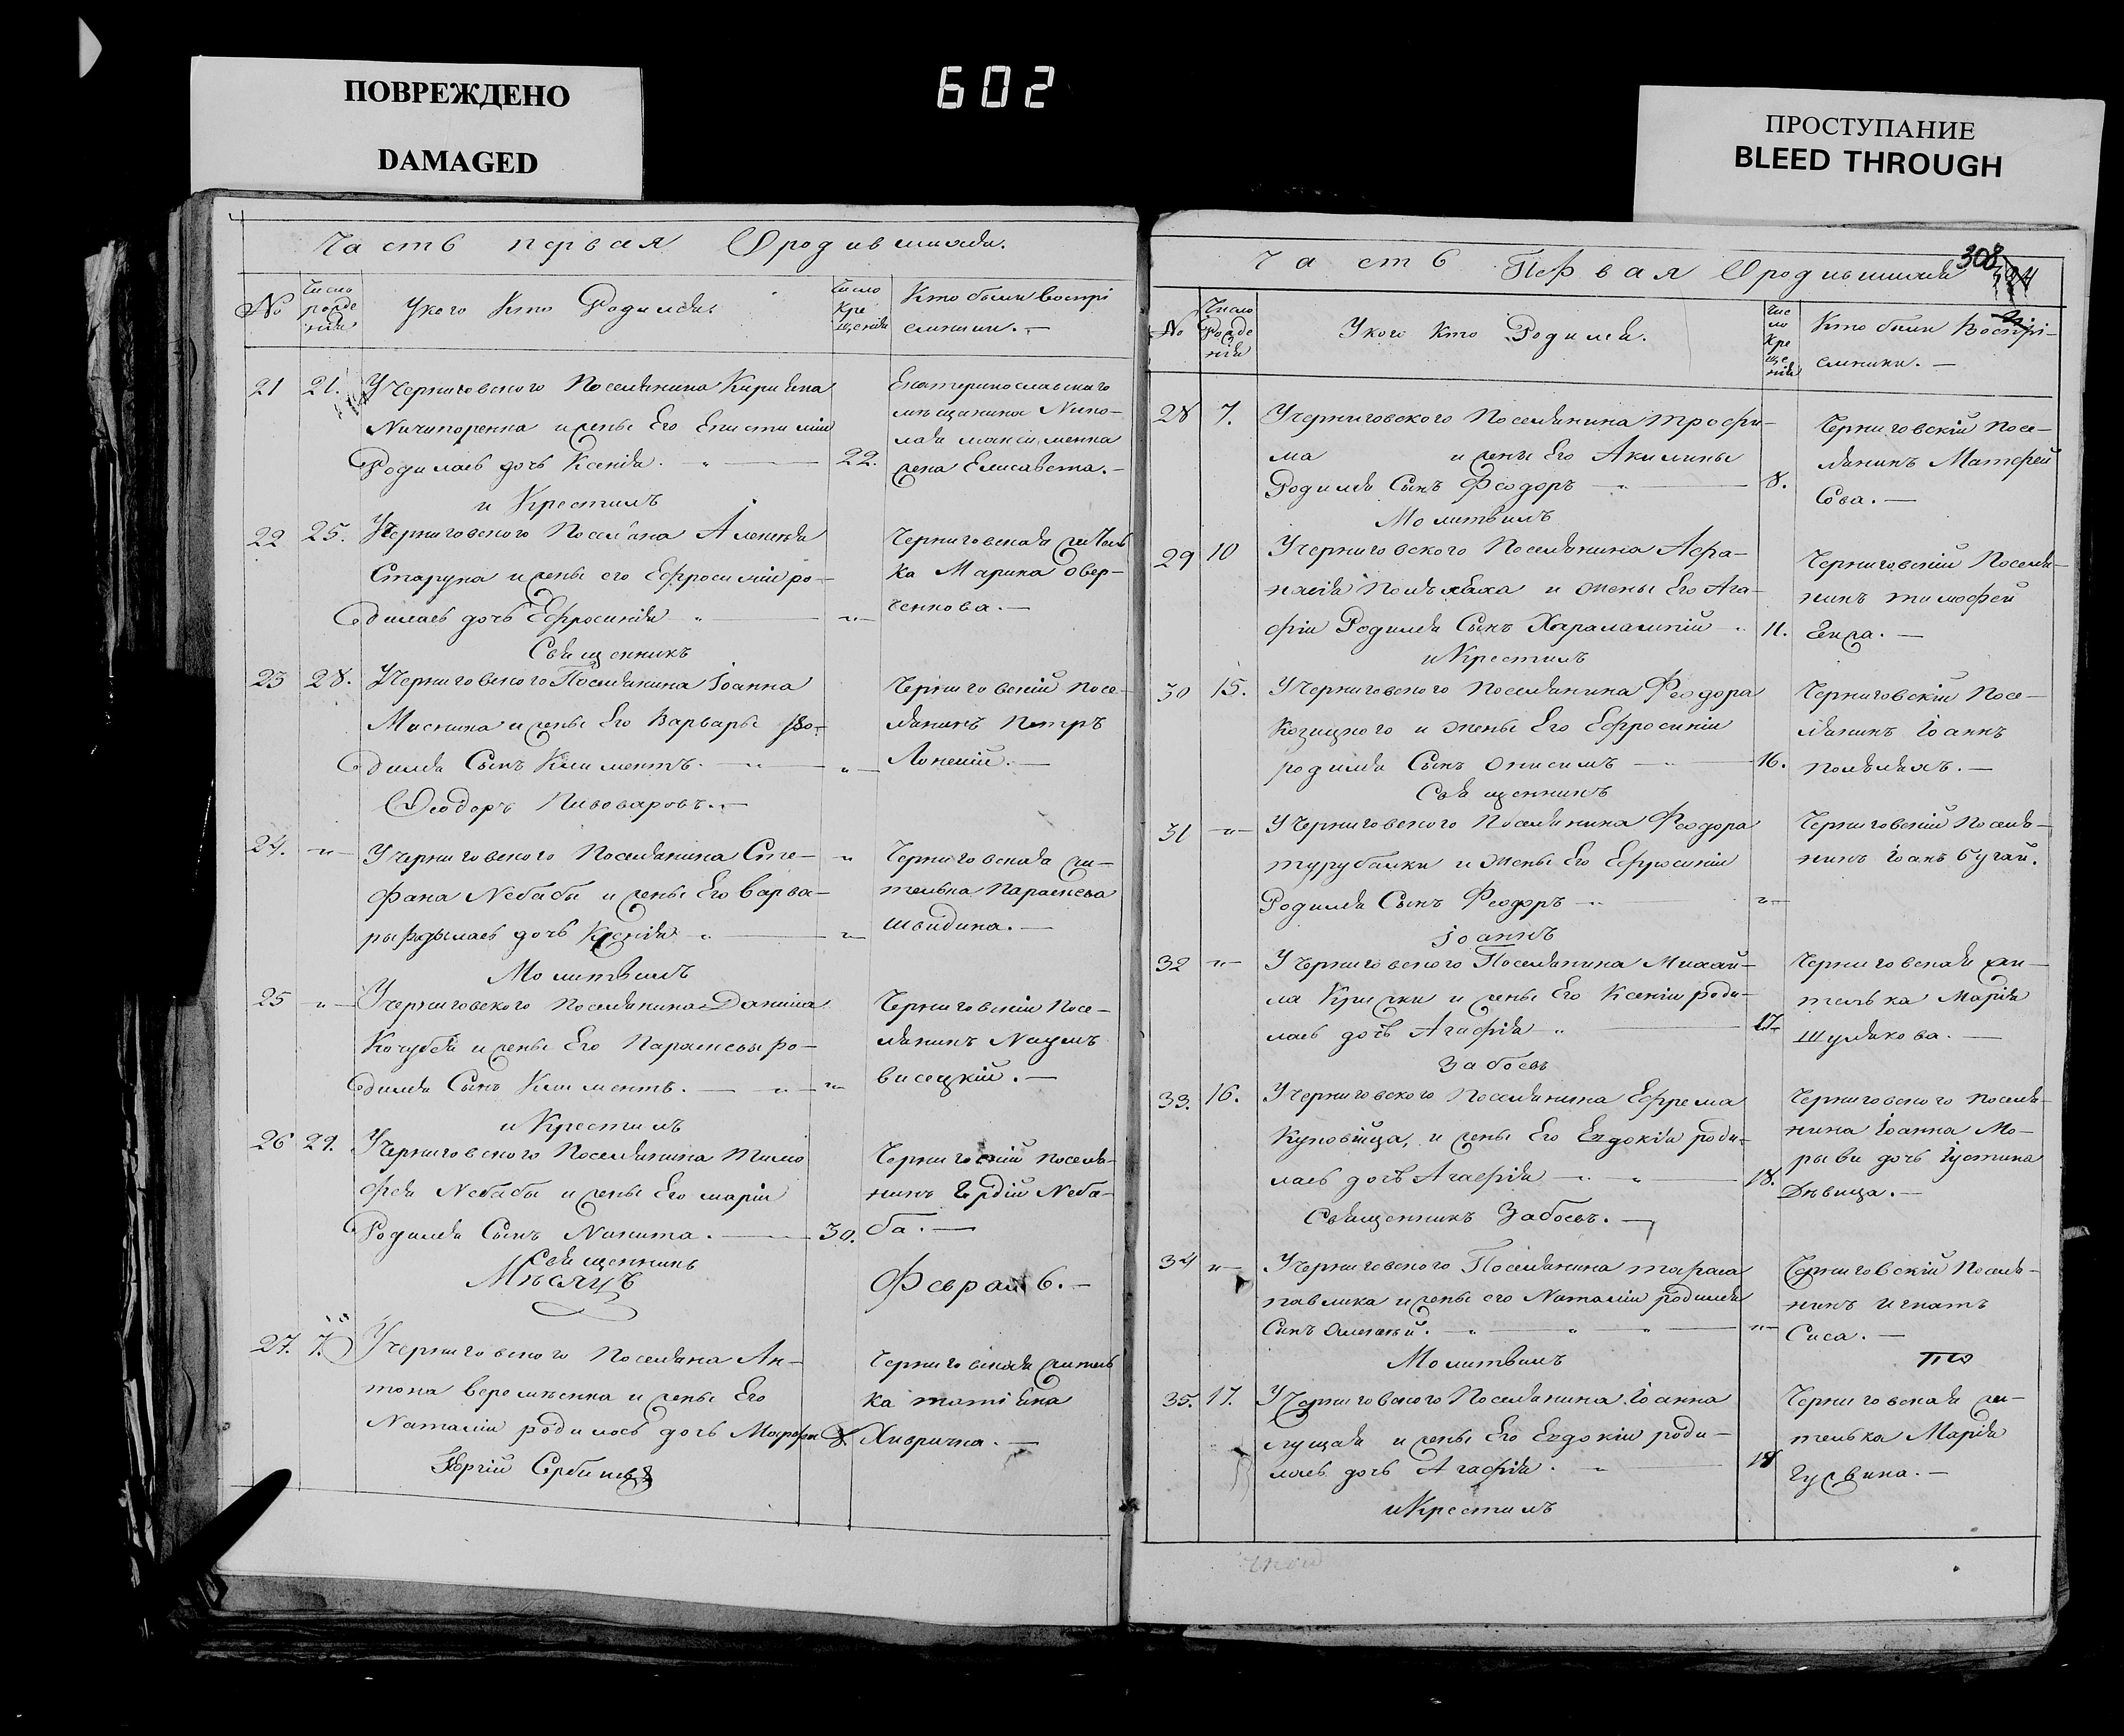 ПОВРЕЖДЕНО
DAMAGED
602
ПРОСТУПАНИЕ
BLEED THROUGH
Часть первая О родившихся.
№
Число рожде нія
У кого Кто Родился.
Число Кре щенія
Кто были воспрі
емники. —
21 21. У Черниговского Поселянина Кирияна
Ничипоренка и жены Его Епистиміи
Родилась дочь Ксенія. 22.
Екатеринославскаго
мещанина Нико-
лая Максименка
жена Елисавета. —
и Крестилъ
22 25. У Черниговского Посел'ана Алексея
Старуна и жены его Ефросиніи ро-
дилась дочь Ефросинія
Черниговская житель
ка Марина Овер-
ченкова. —
Священникъ
23 28. У Черниговского Поселянина Іоанна
и жены Его Варвары Ро-
дился Сынъ Климентъ.
Черниговскій посе-
лянинъ Петръ
Феодоръ Пивоваровъ. —
24. У Черниговского Поселянина Сте-
фана Небабы и жены Его Варва-
ры Родилась дочь Ксенія
Черниговская жи-
телька Параскева
Швидина. —
Молитвилъ
25 У Черниговского Поселянина Даніила
Кочубея и жены Его Параскевы ро-
дился Сынъ Климентъ. —
Черниговскій Посе-
лянинъ Наумъ
висецкій. —
и Крестилъ
26 29. У Черниговского Поселянина Тимо
фея Небабы и жены Его Маріи
Родился Сынъ Никита. 30.
Черниговскій поселя-
нинъ Гордій Неба-
ба. —
Священникъ
Мѣсяцъ Февраль. —
27. 7. У Черниговского Поселяна Ан-
тона Веремѣенка и жены Его
Наталіи родилась дочь Марфа 8.
Черниговская житель
ка
Хивричка. —
Часть Первая О родившихся
308
№
Число Рожде нія
У кого Кто Родился.
Чис ло Кре ще нія
Кто были Воспрі-
емники. —
28 7. У Черниговского Поселянина Трофи-
ма и жены Его Акилины
Родился Сынъ Феодоръ 8.
Черниговскій Посе-
лянинъ Матфей
Сова. —
Молитвилъ
29 10 У Черниговского Поселянина Афа-
насія и жены Его Ага-
фіи Родился Сынъ Харалампій 11.
Черниговскій Поселя-
нинъ Тимофей
и Крестилъ
30 15. У Черниговского Поселянина Феодора
Козицкого и жены Его Ефросиніи
родился Сынъ Онисимъ 16.
Черниговскій Посе-
лянинъ Іоаннъ
Священникъ
31 У Черниговского Поселянина Феодора
Турубалки и жены Его Ефросиніи
Родился Сынъ Феодоръ
Черниговскій Поселя-
нинъ Іоанъ Бугай.
Іоаннъ
32 У Черниговского Поселянина Михай-
ла и жены Его Ксеніи роди-
лась дочь Агафія 17.
Черниговская жи-
телька Марія
Шулякова. —
Забоевъ
33. 16. У Черниговского Поселянина Ефрема
и жены Его Евдокіи роди-
лась дочь Агафія 18.
Черниговского поселя-
нина Іоанна Мо-
ры ви дочь Іустина
Дѣвица. —
Священникъ Забоевъ. —
34 У Черниговского Поселянина Тараса
павлика и жены его Наталіи родился
Сынъ Алексѣй.
Черниговскій Поселя-
нинъ Игнатъ
Сиса. —
Молитвилъ
35. 17. У Черниговского Поселянина Іоанна
и жены Его Евдокіи роди-
лась дочь Агафія. 18
Черниговская жи-
телька Марія
и Крестилъ